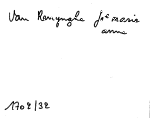 Van Remynghe Jne marie
anna
1702/32